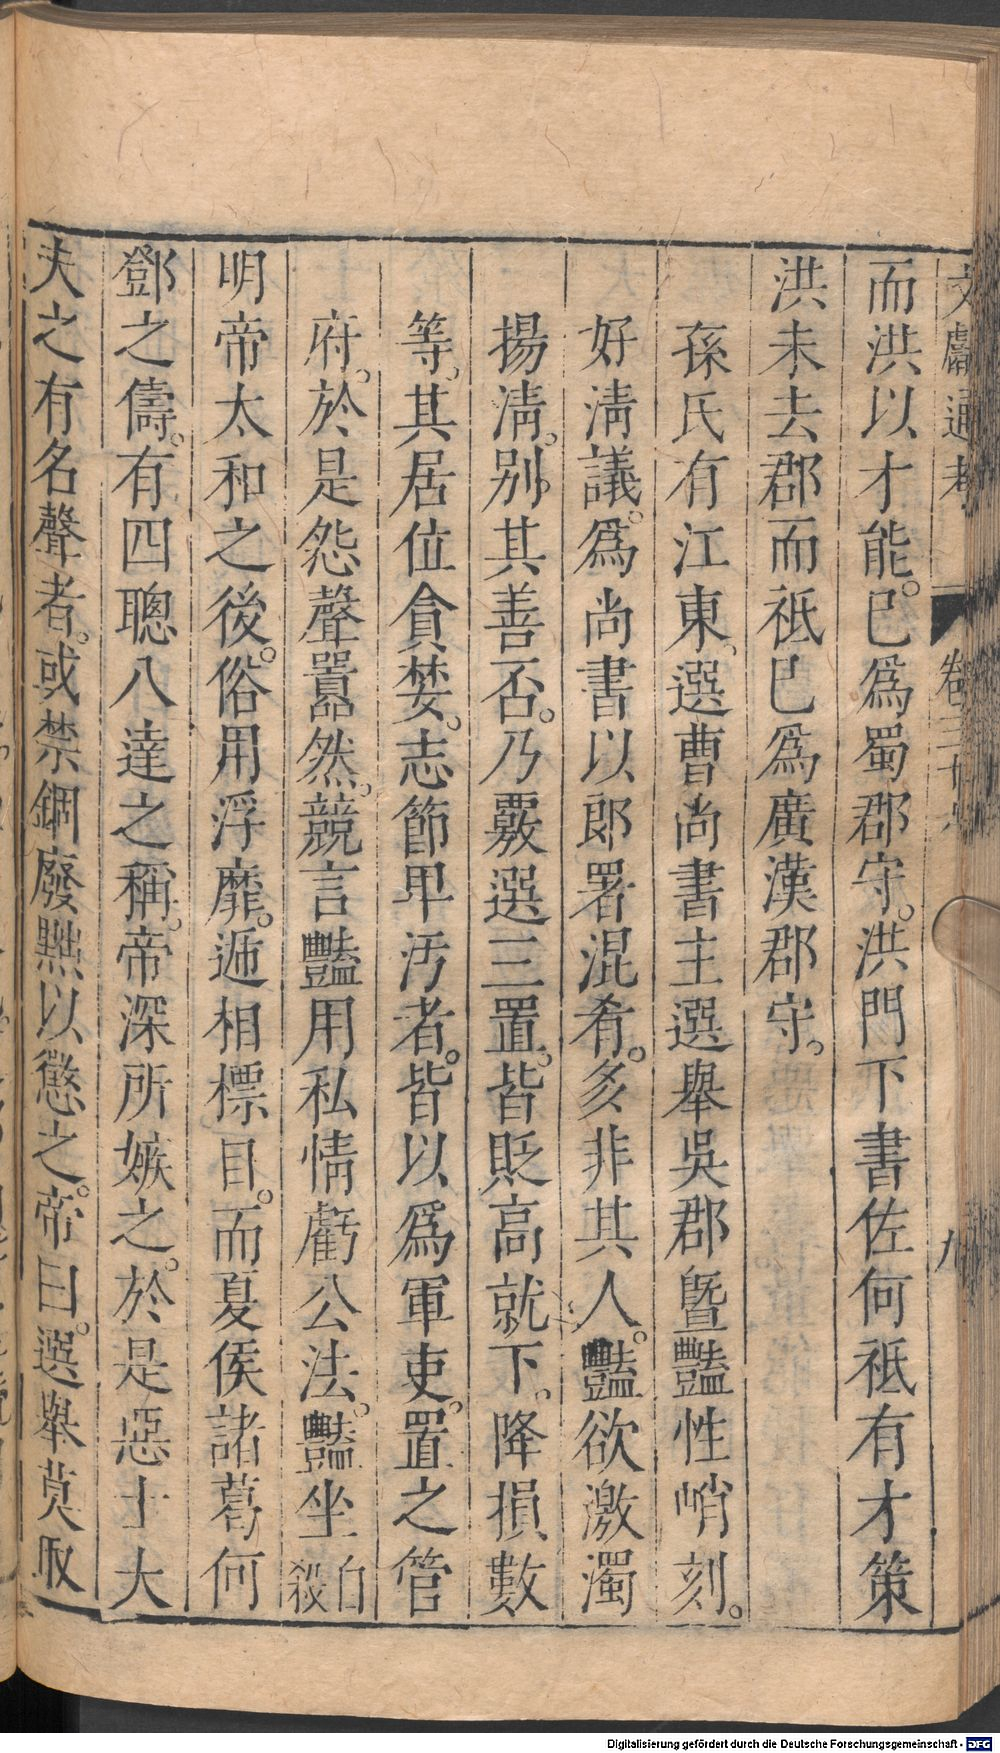 文獻通考 卷三十八 九
而洪以才能。已爲蜀郡守。洪門下書佐何祗有才策
洪未去郡而祗巳爲廣漢郡守。
孫氏有江東。選曹尚書主選舉吳郡曁豔性峭刻。
好淸議。爲尚書以郎署混肴。多非其人。豔欲激濁
揚淸。別其善否。乃覈選三置。皆貶高就下。降損數
等。其居位貪婪。志節卑汚者。皆以爲軍吏。置之管
府。於是怨聲嚻然。競言豔用私情虧公法。豔坐自殺
明帝太和之後。俗用浮靡。遞相標目。而夏侯諸葛何
鄧之儔。有四聰八達之稱。帝深所嫉之。於是惡士大
夫之有名聲者。或禁錮廢黜以懲之。帝曰。選舉莫取
Digitalisierung gefördert durch die Deutsche Forschungsgemeinschaft - DFG